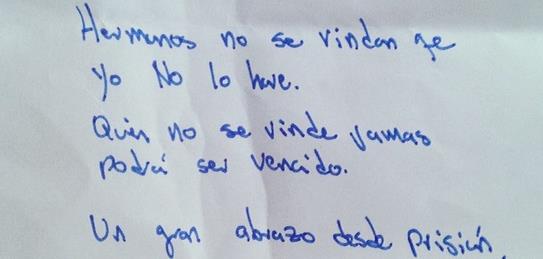 Hermanos no se rindan qe
yo No lo hare.
Quien no se rinde jamas
podrá ser vencido.
Un gran abrazo desde prisión.